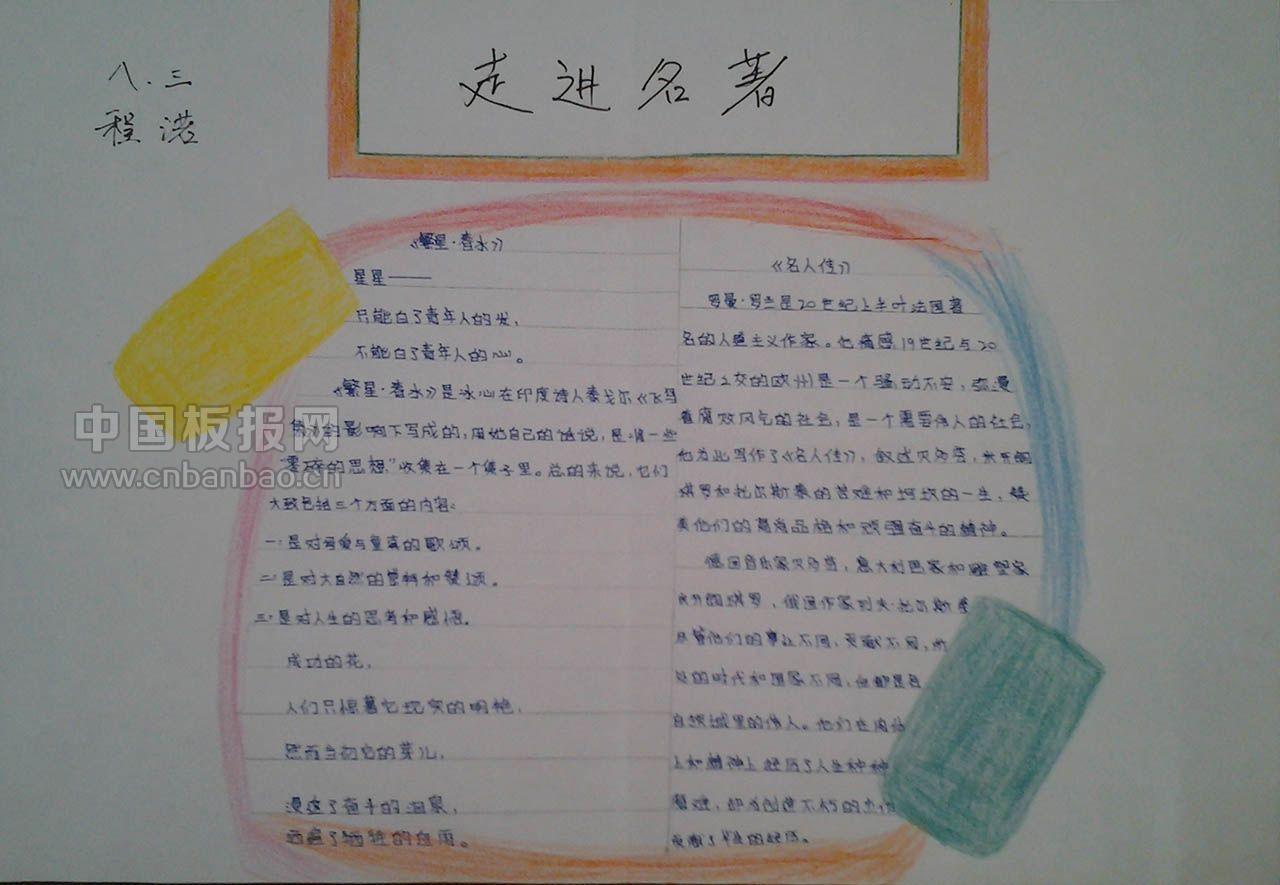 八.三
程浩
走进名著
《繁星·春水》
星星——
只能白了青年人的发,
不能白了青年人的心。
《繁星·春水》是冰心在印度诗人泰戈尔《飞鸟
集》的影响下写成的,用她自己的话说,是将一些
"零碎的思想"收集在一个集子里。总的来说,它们
大致包括三个方面的内容:
一:是对母爱与童真的歌颂。
二:是对大自然的崇拜和赞颂。
三:是对人生的思考和感悟。
成功的花,
人们只惊慕她现实的明艳,
然而当初它的芽儿,
浸透了奋斗的泪泉,
洒遍了牺牲的血雨。
《名人传》
罗曼·罗兰是20世纪上半叶法国著
名的人道主义作家。他痛感19世纪与20
世纪之交的欧洲是一个骚动不安,弥漫
着腐败风气的社会,是一个需要伟人的社会,
他为此写作了《名人传》,叙述贝多芬,米开朗
琪罗和托尔斯泰的苦难和坎坷的一生,赞
美他们的高尚品格和顽强奋斗的精神。
德国音乐家贝多芬,意大利画家和雕塑家
米开朗琪罗,俄国作家列夫·托尔斯泰
尽管他们的事业不同,贡献不同,所
处的时代和国家不同,但都是各
自领域里的伟人。他们在肉体
上和精神上经历了人生种种
磨难,却为创造不朽的杰作
贡献了毕生的经历。
中国板报网
www.cnbanbao.cn